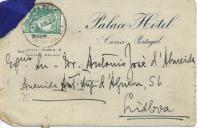 Palace Hotel
Curia - Portugal
Exmo Sr. Dr. Antonio José d'Almeida
Avenida Antº Augº d'Aguiar, 56
Lisboa